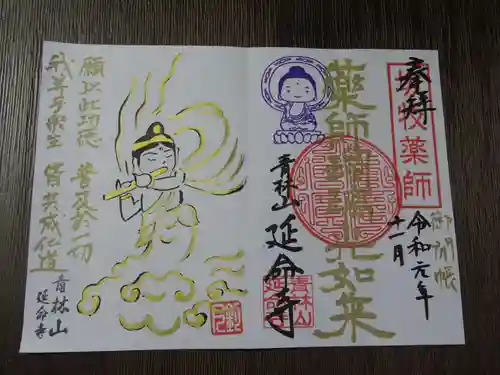 奉拝
坂牧薬師
令和元年
十一月
御開帳
薬師瑠璃光如来
青林山
延命寺
青林山
延命寺
願以此功徳
普及於一切
我等与衆生
皆共成仏道
青林山
延命寺